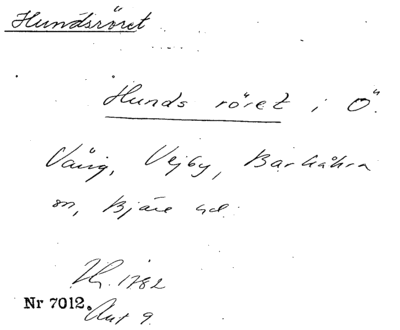 Hundsröret
Hunds röret i Ö.
Vång, Vejby, Barkåkra
sn, Bjäre hd.
1782
Nr 7012. Akt 9.